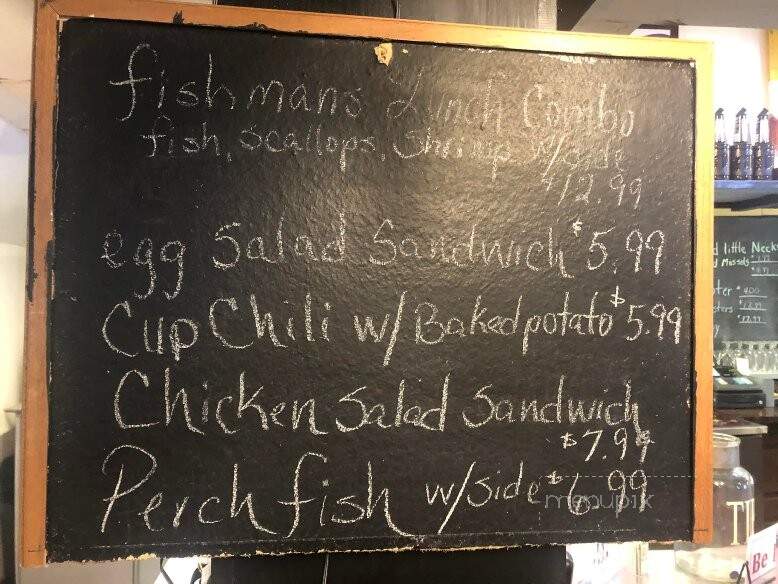 fishmans Lunch Combo
fish, scallops, Shrimp w/side
$12.99
egg Salad Sandwich $5.99
Cup Chili w/Baked potato $5.99
Chicken Salad Sandwich
$7.99
Perch fish w/side $6.99
menupix
little Neck
Mussels
Be